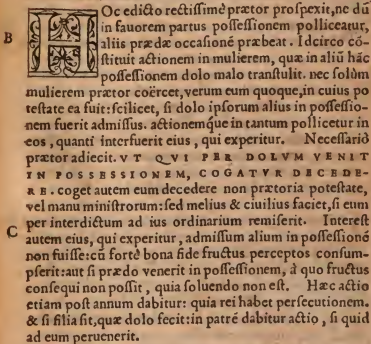 HOc edicto rectissimè prætor prospexit, ne dũ
in fauorem partus possessionem polliceatur,
B
aliis prædæ occasionẽ præbeat. Idcirco cõ-
stituit actionem in mulierem, quæ in aliũ hãc
possessionem dolo malo transtulit. nec solùm
mulierem prætor coërcet, verum eum quoque, in cuius po
testate ea fuit: scilicet, si dolo ipsorum alius in possessio-
nem fuerit admissus. actionemq́ue in tantum pollicetur in
eos, quanti interfuerit eius, qui experitur. Necessariò
prætor adiecit. VT QVI PER DOLVM VENIT
IN POSSESSIONEM, COGATVR DECEDE-
RE. coget autem eum decedere non prætoria potestate,
vel manu ministrorum: sed melius & ciuilius faciet, si eum
per interdictum ad ius ordinarium remiserit. Interest
C
autem eius, qui experitur, admissum alium in possessionẽ
non fuisse: cũ fortè bona fide fructus perceptos consum-
pserit: aut si prædo venerit in possessionem, à quo fructus
consequi non possit, quia soluendo non est. Hæc actio
etiam post annum dabitur: quia rei habet persecutionem.
& si filia sit, quæ dolo fecit: in patrẽ dabitur actio, si quid
ad eum peruenerit.